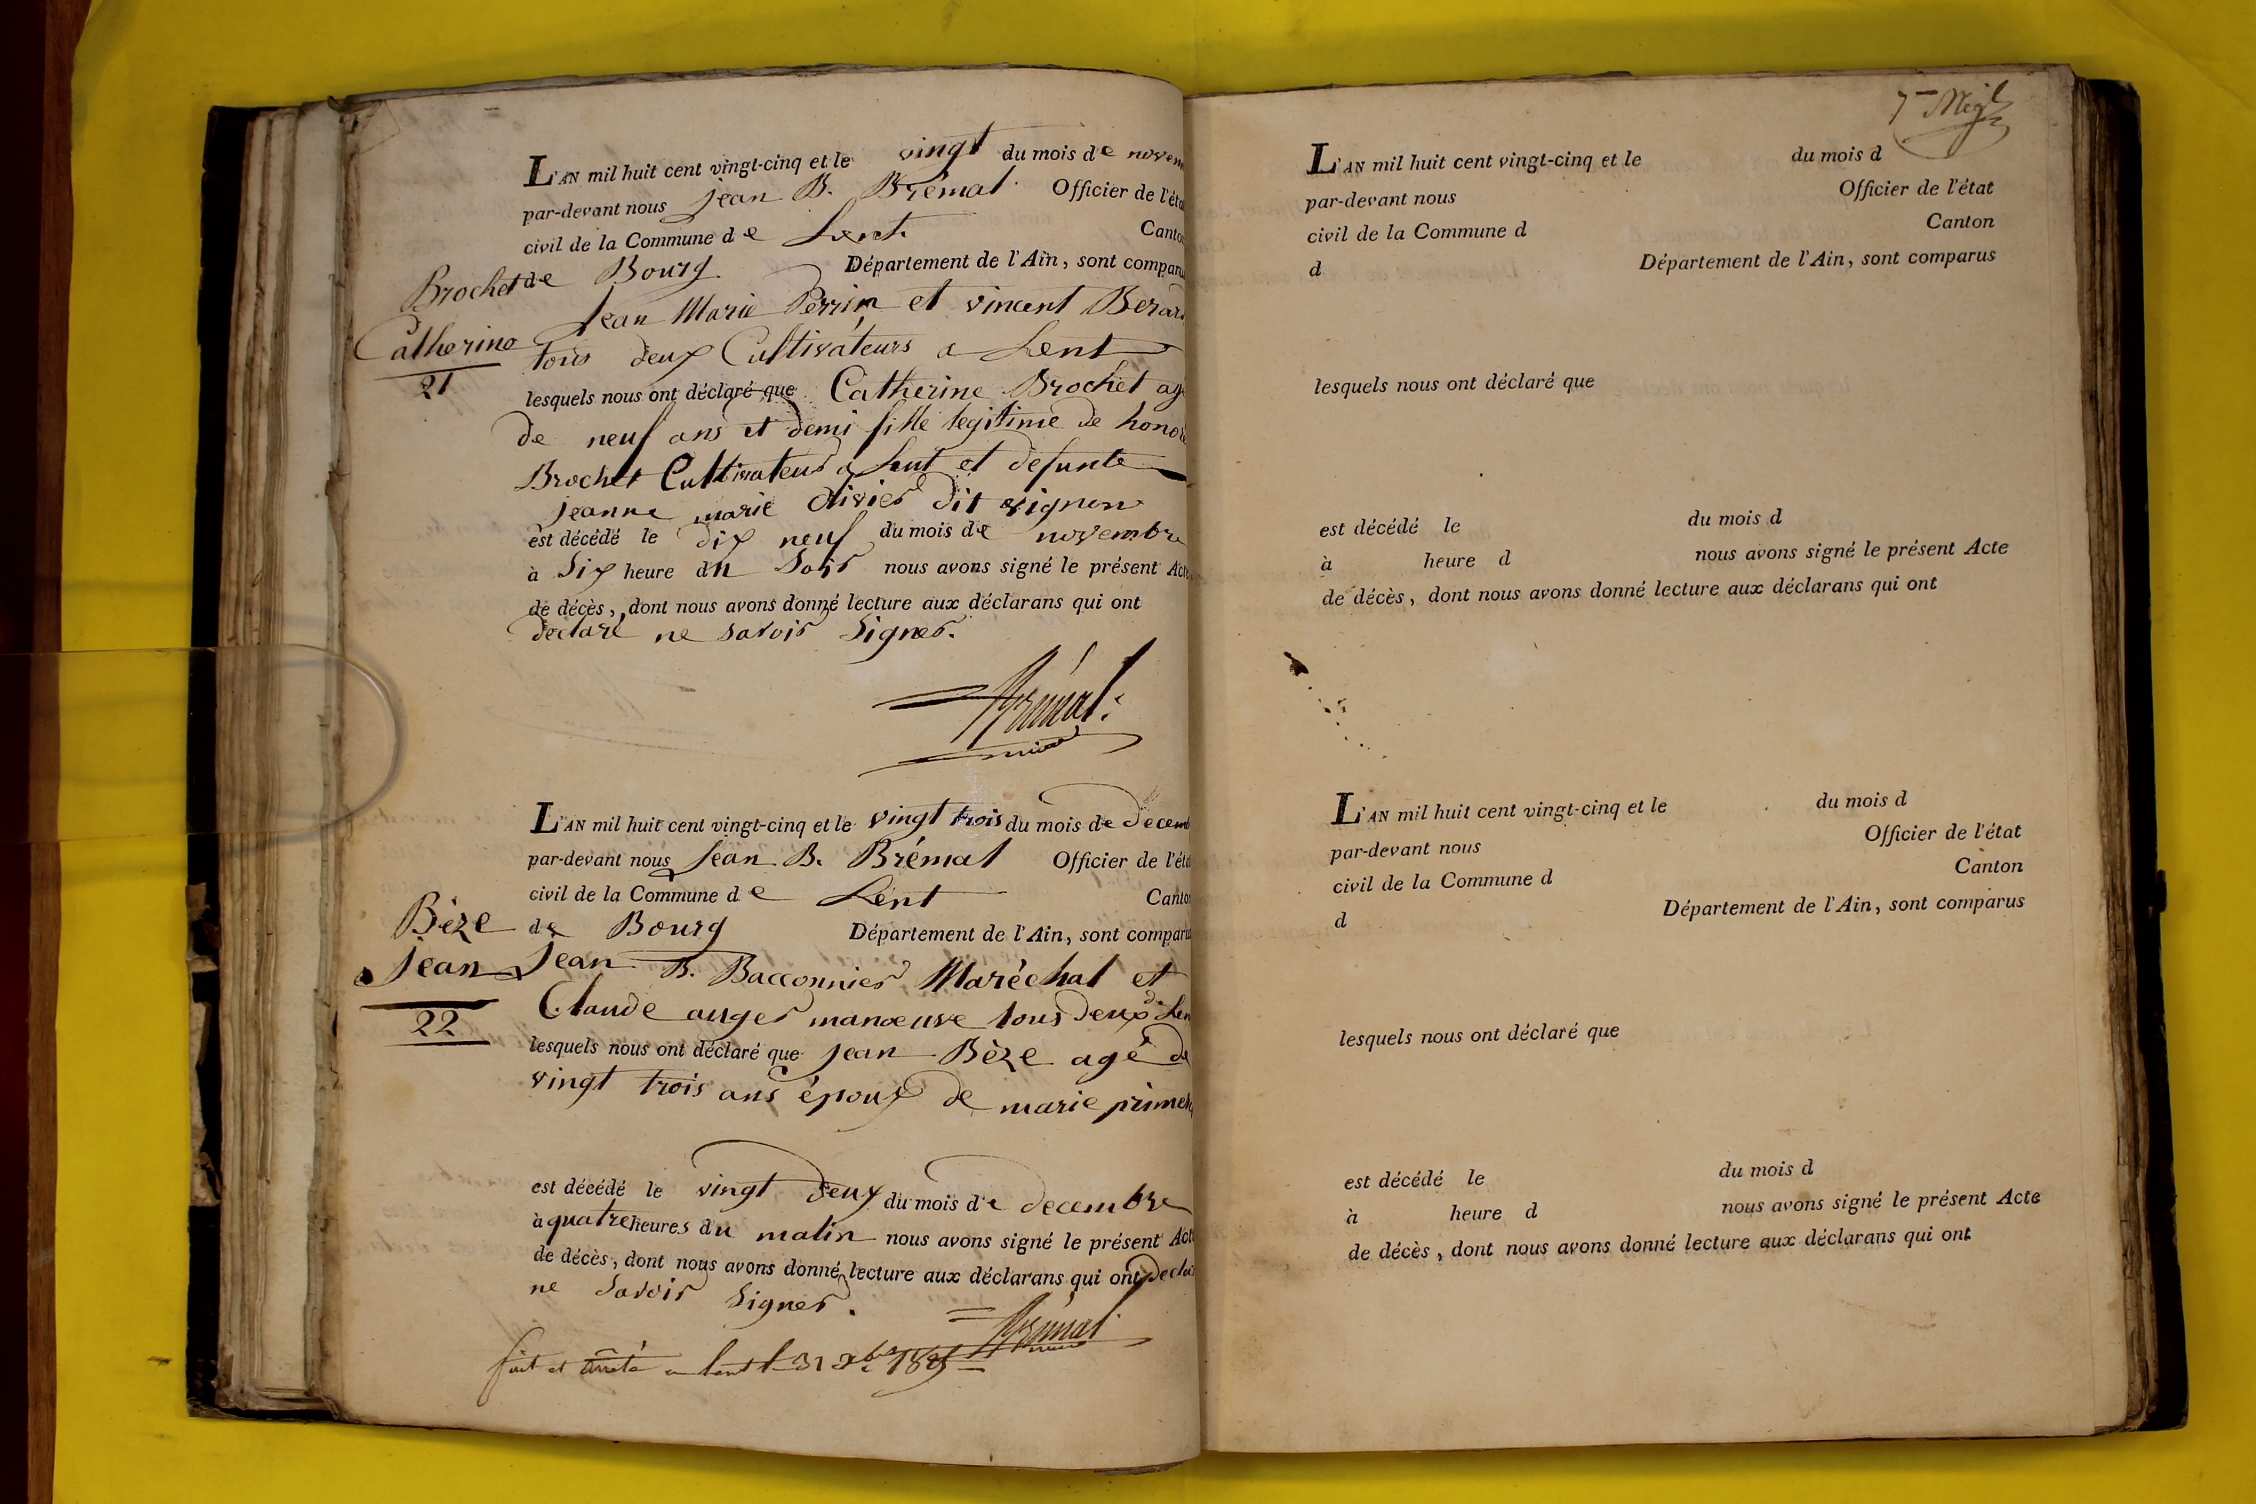 L'AN mil huit cent vingt-cinq et le vingt du mois de novem
par-devant nous jean B. Brémal. Officier de l'éta
civil de la Commune de Lent. Canton
de Bourg Département de l'Ain, sont comparu
Brochet
Catherine
21
Jean Marie Perrin et vincent Berar
tous deux Cultivateurs a Lent
lesquels nous ont déclaré que Catherine Brochet ag
de neuf ans et demi fille legitime de honoré
Brochet Cultivateur a Lent et defunte
jeanne marie Olivier dit vignon
est décédé le dix neuf du mois de novembre
à Six heure du Soir nous avons signé le présent Acte
de décès, dont nous avons donné lecture aux déclarans qui ont
declaré ne savoir Signer.
Brémal.
L'AN mil huit cent vingt-cinq et le vingt trois du mois de decem
par-devant nous jean B. Brémal Officier de l'éta
civil de la Commune de Lent Canton
de Bourg Département de l'Ain, sont comparu
Bèze
jean
22
jean B. Bacconnier Maréchal et
Claude auger manœuvre tous deux de Len
lesquels nous ont déclaré que jean Bèze agé de
vingt trois ans époux de marie
est décédé le vingt deux du mois de decembre
à quatre heures du matin nous avons signé le présent Acte
de décès, dont nous avons donné lecture aux déclarans qui ont decla
ne Savoir Signer.
Brémal
fait et arreté a lent le 31 Xbre 1825
L'AN mil huit cent vingt-cinq et le du mois d
par-devant nous Officier de l'état
civil de la Commune d Canton
d Département de l'Ain, sont comparus
lesquels nous ont déclaré que
est décédé le du mois d
à heure d nous avons signé le présent Acte
de décès, dont nous avons donné lecture aux déclarans qui ont
L'AN mil huit cent vingt-cinq et le du mois d
par-devant nous Officier de l'état
civil de la Commune d Canton
d Département de l'Ain, sont comparus
lesquels nous ont déclaré que
est décédé le du mois d
à heure d nous avons signé le présent Acte
de décès, dont nous avons donné lecture aux déclarans qui ont